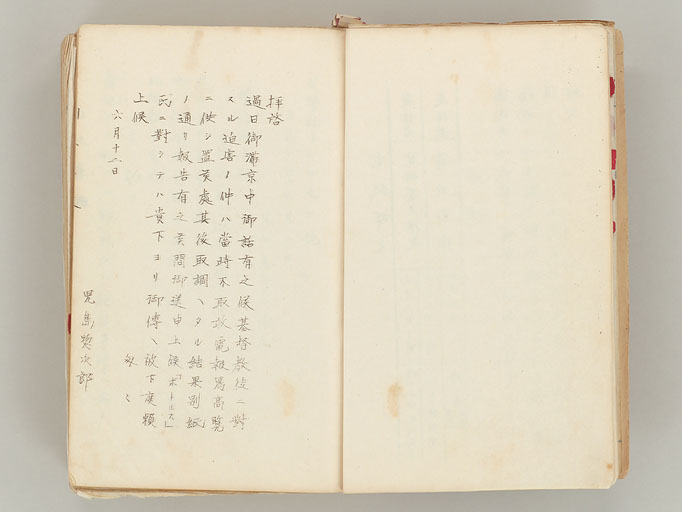 拝啓
過日御滞京中御話有之候基督教徒ニ對
スル迫害ノ件ハ當時不取敢電報寫高覧
ニ供シ置候處其後取調ヘタル結果別紙
ノ通リ報告有之候間御送申上候「ボールトヰス」
氏ニ對シテハ貴下ヨリ御傳ヘ被下度頼
上候
敬々
六月十二日
児島惣次郎